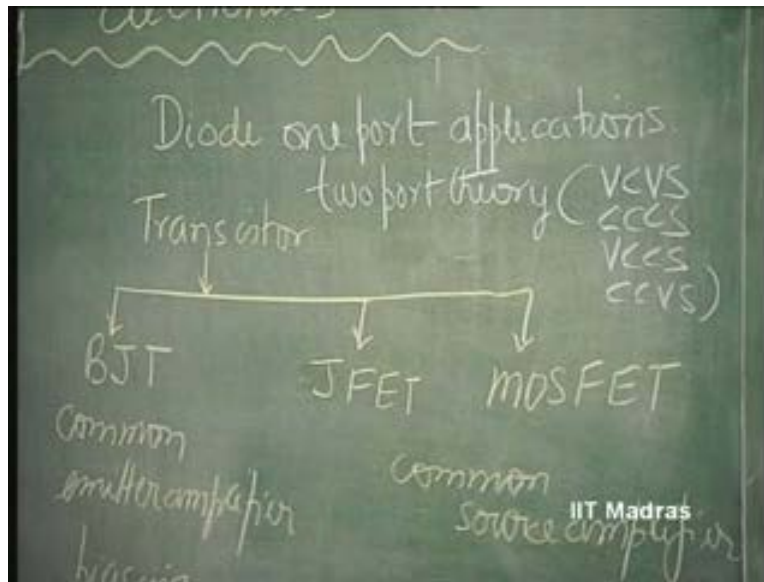 Diode one port applications.
two port theory ( VCVS
CCCS
VCCS
CCVS )
Transistor
BJT
JFET
MOSFET
common
emitter amplifier
common
source amplifier
IIT Madras